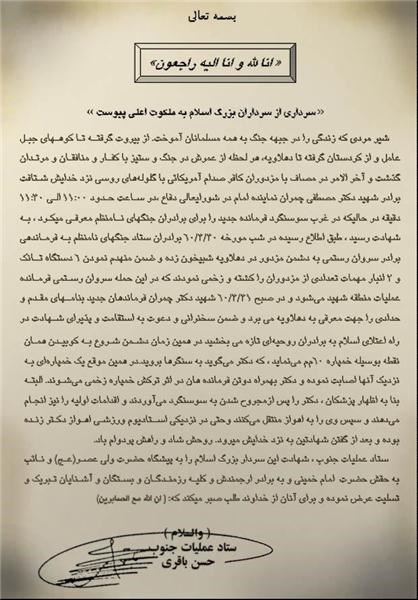 بسمه تعالی
«انا لله و انا الیه راجعون»
«سرداری از سرداران بزرگ اسلام به ملکوت اعلی پیوست»
شیر مردی که زندگی را در جبهه جنگ به همه مسلمانان آموخت. از بیروت گرفته تا کوههای جبل
عامل و از کردستان گرفته تا دهلاویه، هر لحظه از عمرش در جنگ و ستیز با کفار و منافقان و مرتدان
گذشت و آخر الامر در مصاف با مزدوران کافر صدام آمریکائی با گلوله‌های روسی نزد خدایش شتافت
برادر شهید دکتر مصطفی چمران نماینده امام در شورایعالی دفاع، در ساعت حدود ۱۱:۰۰ الی ۱۱:۳۰
دقیقه در حالیکه در غرب سوسنگرد فرمانده جدید را برای برادران جنگهای نامنظم معرفی میکرد، به
شهادت رسید، طبق اطلاع رسیده در شب مورخه ۶۰/۳/۳۰ برادران ستاد جنگهای نامنظم به فرماندهی
برادر سروان رستمی به دشمن مزدور در دهلاویه شبیخون زده و ضمن منهدم نمودن ۶ دستگاه تانک
و ۲ انبار مهمات تعدادی از مزدوران را کشته و زخمی نمودند که در این حمله سروان رستمی فرمانده
عملیات منطقه شهید می‌شود و در صبح ۶۰/۳/۳۱ شهید دکتر چمران فرماندهان جدید بنامهای مقدم و
حدادی را جهت معرفی به دهلاویه می برد و ضمن سخنرانی و دعوت به استقامت و پذیرای شهادت در
راه اعتلای اسلام به برادران روحیه‌ای تازه می بخشید در همین زمان دشمن شروع به کوبیدن همان
نقطه بوسیله خمپاره ۶۰مم می‌نماید، که دکتر می‌گوید به سنگرها بروید.در همین موقع یک خمپاره‌ای به
نزدیک آنها اصابت نموده و دکتر بهمراه دوتن فرمانده هان در اثر ترکش خمپاره زخمی می‌شوند. البته
بنا به اظهار پزشکان، دکتر را پس ازمجروح شدن به سوسنگرد می‌آورند و اقدامات اولیه را نیز انجام
می‌دهند و سپس وی را به اهواز منتقل می‌کنند وحتی در نزدیکی استادیوم ورزشی اهواز دکتر زنده
بوده و بعد از گفتن شهادتین به نزد خدایش میرود. روحش شاد و راهش پردوام باد.
ستاد عملیات جنوب، شهادت این سردار بزرگ اسلام را به پیشگاه حضرت ولی عصر(عج) و نائب
به حقش حضرت امام خمینی و به برادر ارجمندش و کلیه رزمندگان و بستگان و آشنایان تبریک و
تسلیت عرض نموده و برای آنان از خداوند طلب صبر میکند که: ( ان الله مع الصابرین)
( والسلام )
ستاد عملیات جنوب
حسن باقری